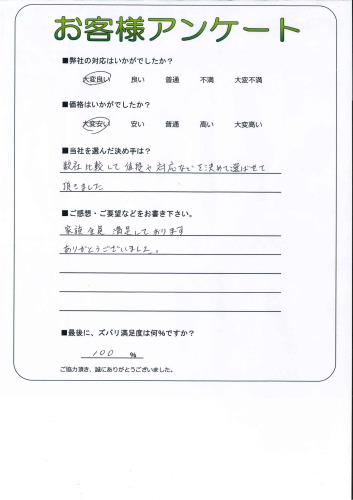 お客様アンケート
■弊社の対応はいかがでしたか?
大変良い 良い 普通 不満 大変不満
■価格はいかがでしたか?
大変安い 安い 普通 高い 大変高い
■当社を選んだ決め手は?
数社比較して価格や対応などを決めて選ばせて
頂きました
■ご感想・ご要望などをお書き下さい。
家族全員満足しております
ありがとうございました。
■最後に、ズバリ満足度は何%ですか?
100 %
ご協力頂き、誠にありがとうございました。